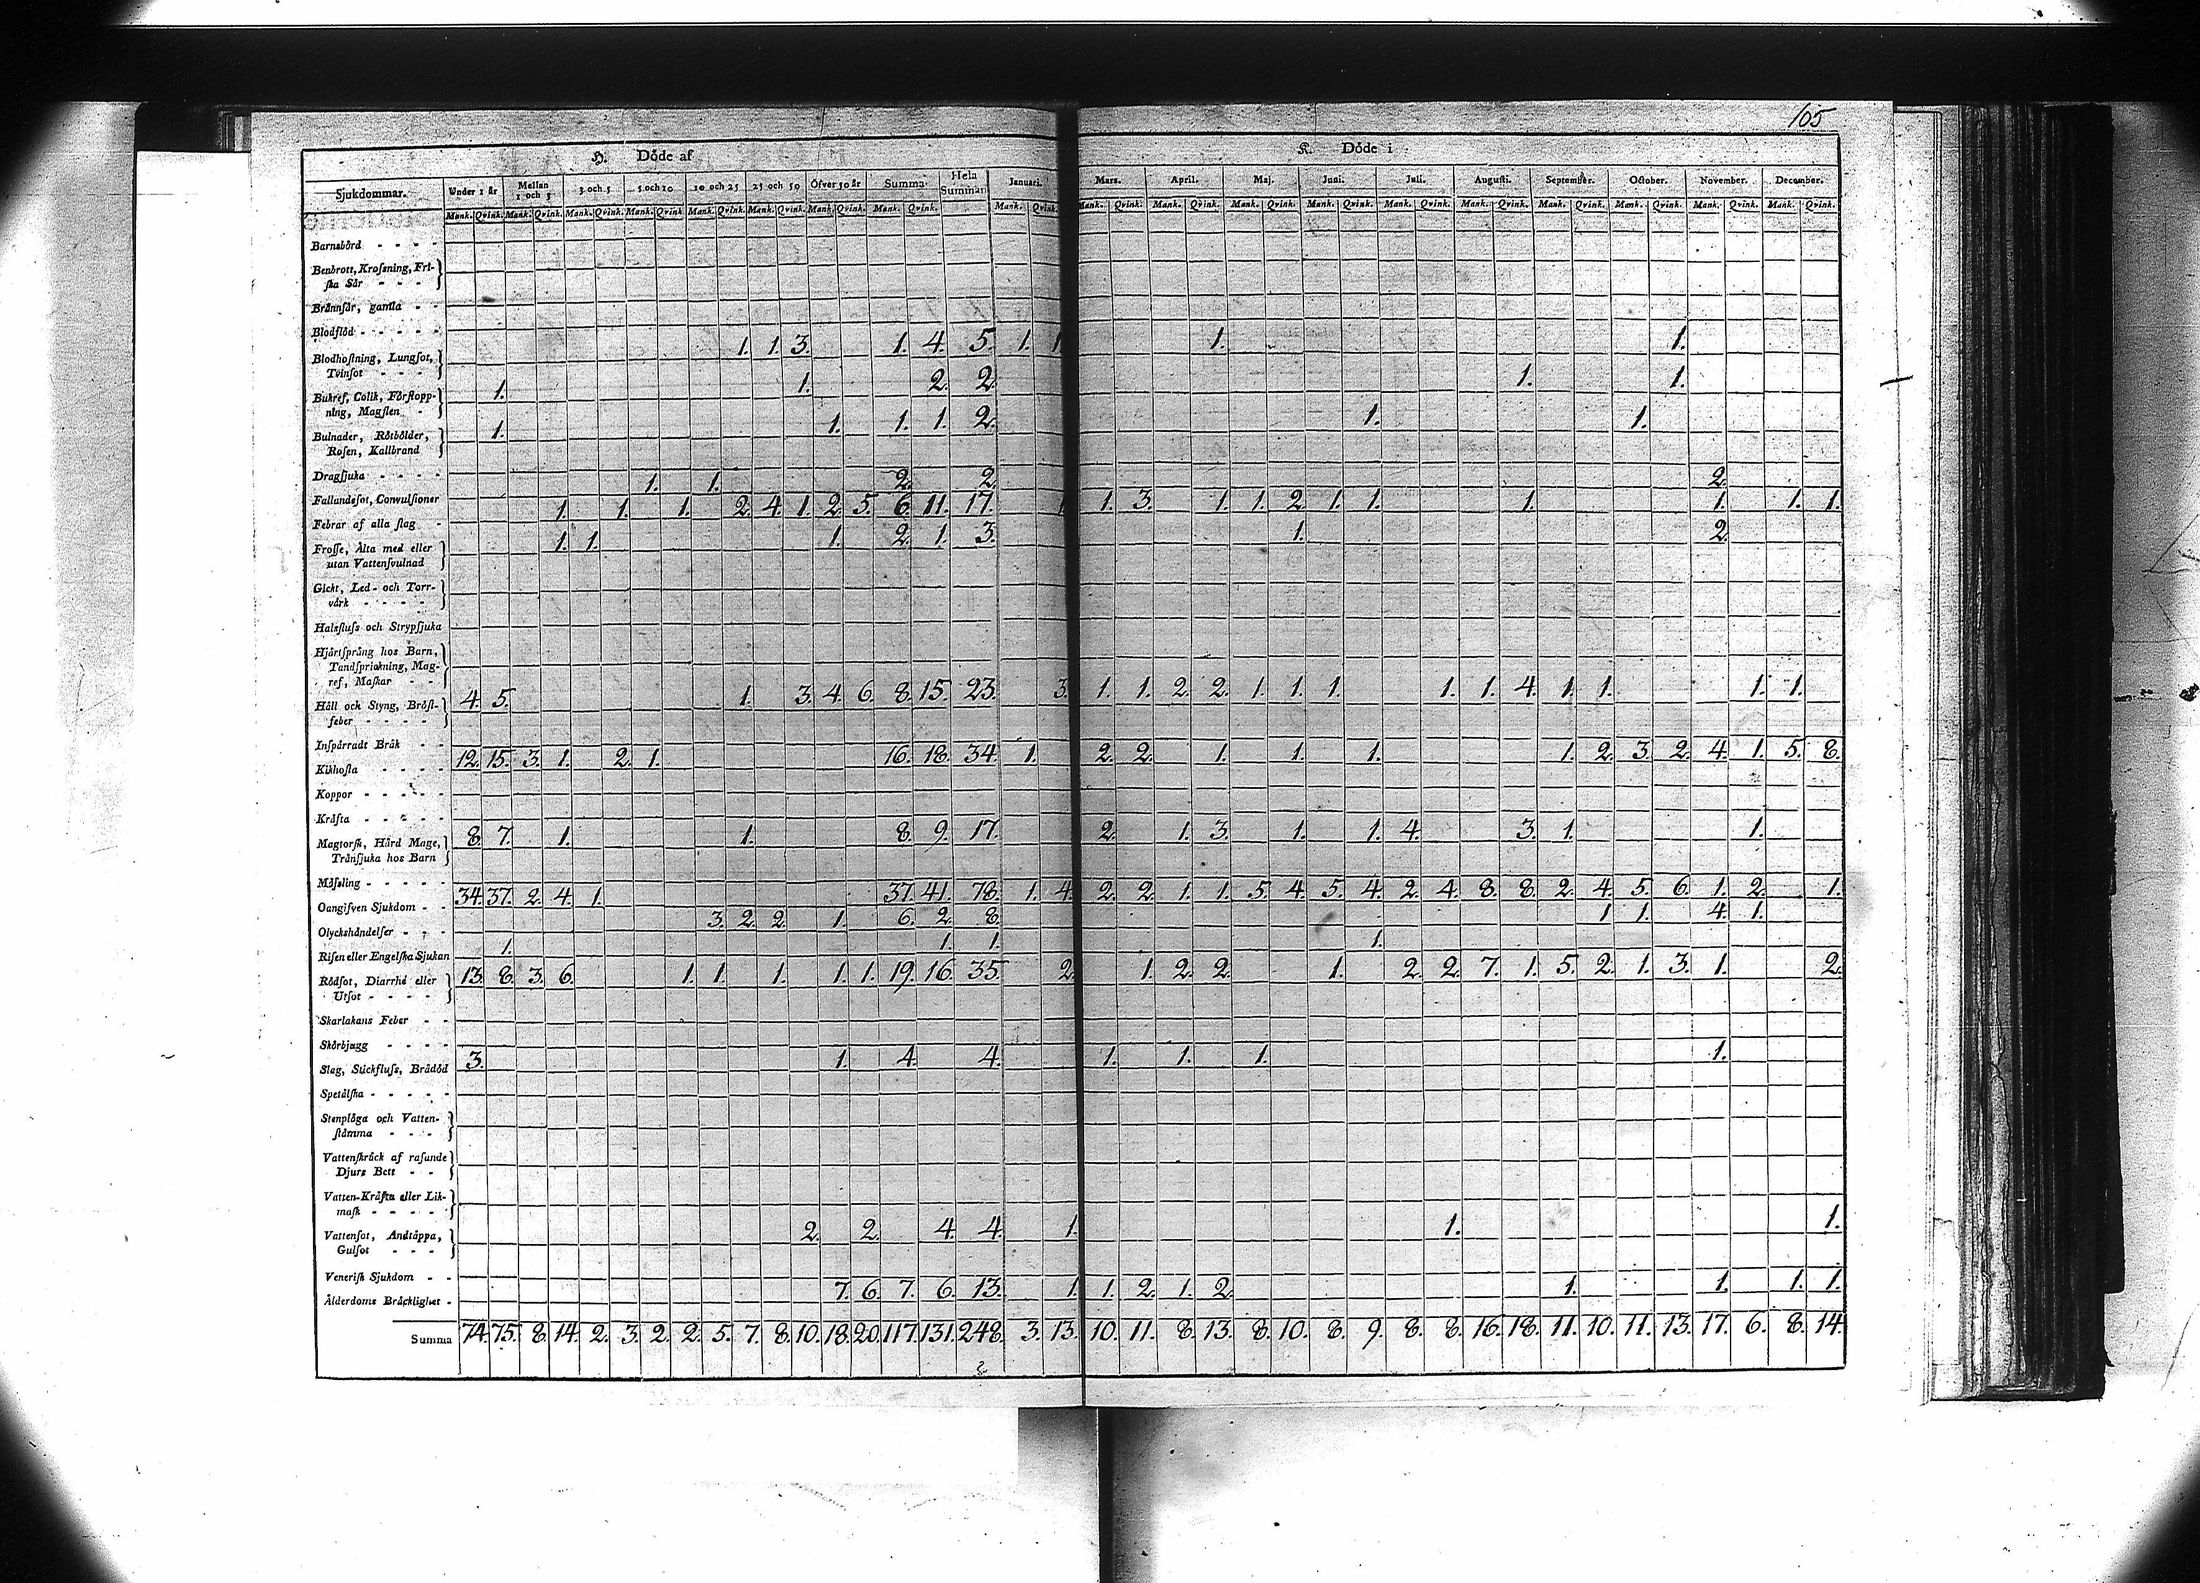 105
H. Döde af
K. Döde i
Sjukdommar. Under 1 år Mellan 1 och 3 3 och 5 5 och 10 10 och 25 25 och 50 Öfver 50 år Summa Hela Summan Januari. Mars. April. Maj. Juni. Juli. Augusti. September. October. November. December.
Mank. Qvink. Mank. Qvink. Mank. Qvink. Mank. Qvink. Mank. Qvink. Mank. Qvink. Mank. Qvink. Mank. Qvink. Mank. Qvink. Mank. Qvink. Mank. Qvink. Mank. Qvink. Mank. Qvink. Mank. Qvink. Mank. Qvink. Mank. Qvink. Mank. Qvink. Mank. Qvink. Mank. Qvink.
Barnsbörd
Benbrott, Krossning, Fri-
ska Sår
Brännsår, gamla
Blodflöd
1. 1. 3. 1. 4. 5. 1. 1. 1. 1.
Blodhostning, Lungsot,
Tvinsot
1. 1. 2. 2. 1. 1.
Bukref, Colik, Förstopp-
ning, Magsten
1. 1. 1. 1. 2. 1. 1.
Bulnader, Rötbölder,
Rosen, Kallbrand
Dragsjuka
1. 1. 2. 2. 2.
Fallandesot, Convulsioner
1. 1. 1. 2. 4. 1. 2. 5. 6. 11. 17. 1. 1. 3. 1. 1. 2. 1. 1. 1. 1. 1. 1.
Febrar af alla slag
1. 1. 1. 2. 1. 3. 1. 2.
Frosse, Älta med eller
utan Vattensvulnad
Gickt, Led- och Torr-
värk
Halsfluss och Strypsjuka
Hjärtsprång hos Barn,
Tandsprickning, Mag-
ref, Maskar
4. 5. 1. 3. 4. 6. 8. 15. 23. 3. 1. 1. 2. 2. 1. 1. 1. 1. 1. 4. 1. 1. 1. 1.
Håll och Styng, Bröst-
feber
Inspärradt Bråk
12. 15. 3. 1. 2. 1. 16. 18. 34. 1. 2. 2. 1. 1. 1. 1. 2. 3. 2. 4. 1. 5. 8.
Kikhosta
Koppor
Kräfta
8. 7. 1. 1. 8. 9. 17. 2. 1. 3. 1. 1. 4. 3. 1. 1.
Magtorsk, Hård Mage,
Tränsjuka hos Barn
Mässling
34. 37. 2. 4. 1. 37. 41. 78. 1. 4. 2. 2. 1. 1. 5. 4. 5. 4. 2. 4. 8. 8. 2. 4. 5. 6. 1. 2. 1.
Oangifven Sjukdom
3. 2. 2. 1. 6. 2. 8. 1 1. 4. 1.
Olyckshändelser
1. 1. 1. 1.
Risen eller Engelska Sjukan
13. 8. 3. 6. 1. 1. 1. 1. 1. 19. 16. 35. 2. 1. 2. 2. 1. 2. 2. 7. 1. 5. 2. 1. 3. 1. 2.
Rödsot, Diarrhé eller
Utsot
Skarlakans Feber
Skörbjugg
3. 1. 4. 4. 1. 1. 1. 1.
Slag, Stickfluss, Brådöd
Spetälska
Stenplåga och Vatten-
stämma
Vattenskräck af rasande
Djurs Bett
Vatten-Kräfta eller Lik-
mask
2. 2. 4. 4. 1. 1. 1.
Vattensot, Andtäppa,
Gulsot
Venerisk Sjukdom
7. 6. 7. 6. 13. 1. 1. 2. 1. 2. 1. 1. 1. 1.
Ålderdoms Bräcklighet
Summa 74. 75. 8. 14. 2. 3. 2. 2. 5. 7. 8. 10. 18. 20. 117. 131. 248. 3. 13. 10. 11. 8. 13. 8. 10. 8. 9. 8. 8. 16. 18. 11. 10. 11. 13. 17. 6. 8. 14.